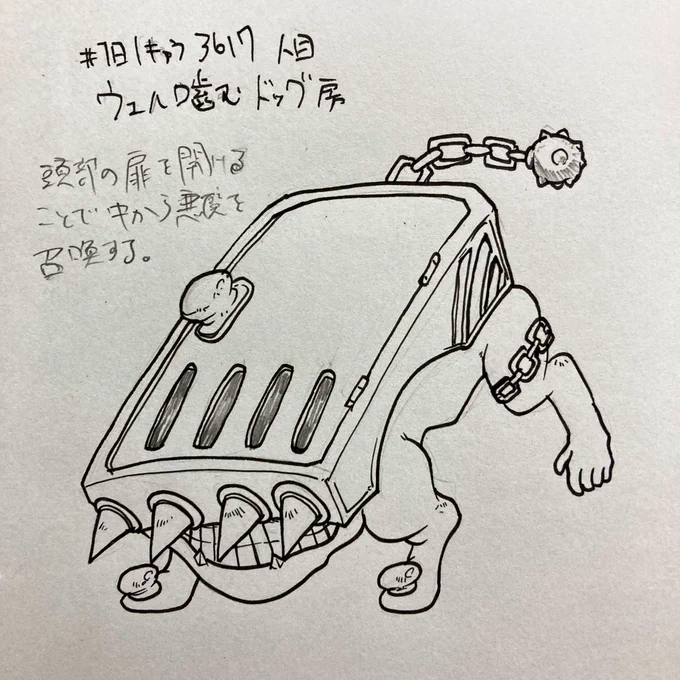 #1日1キャラ 3617人目
ウェル噛むドッグ房
頭部の扉を開ける
ことで中から悪魔を
召喚する。